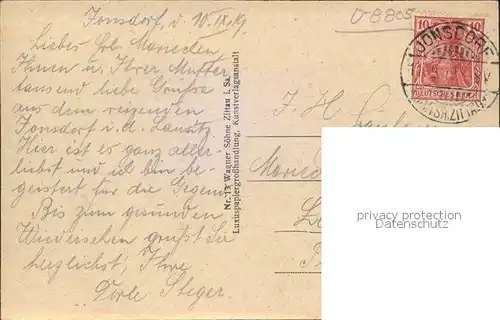 Jonsdorf, d. 10. IX. 19.
Liebes Frl. Marieden,
Ihnen u. Ihrer Mutter
tausend liebe Grüße
aus dem reizenden
Jonsdorf i. d. Lausitz
Hier ist es ganz aller-
liebst und ich bin be-
geistert für die Gegend.
Bis zum gesunden
Wiedersehen grüßt Sie
herzlichst, Ihre
Dorle Steger.
Nr. 13 Wagner Söhne Zittau i. Sa.
Luxuspapiergroßhandlung, Kunstverlagsanstalt
U-8805
10 10
DEUTSCHES REICH
JONSDORF
J. H.
Maried
privacy protection
Datenschutz